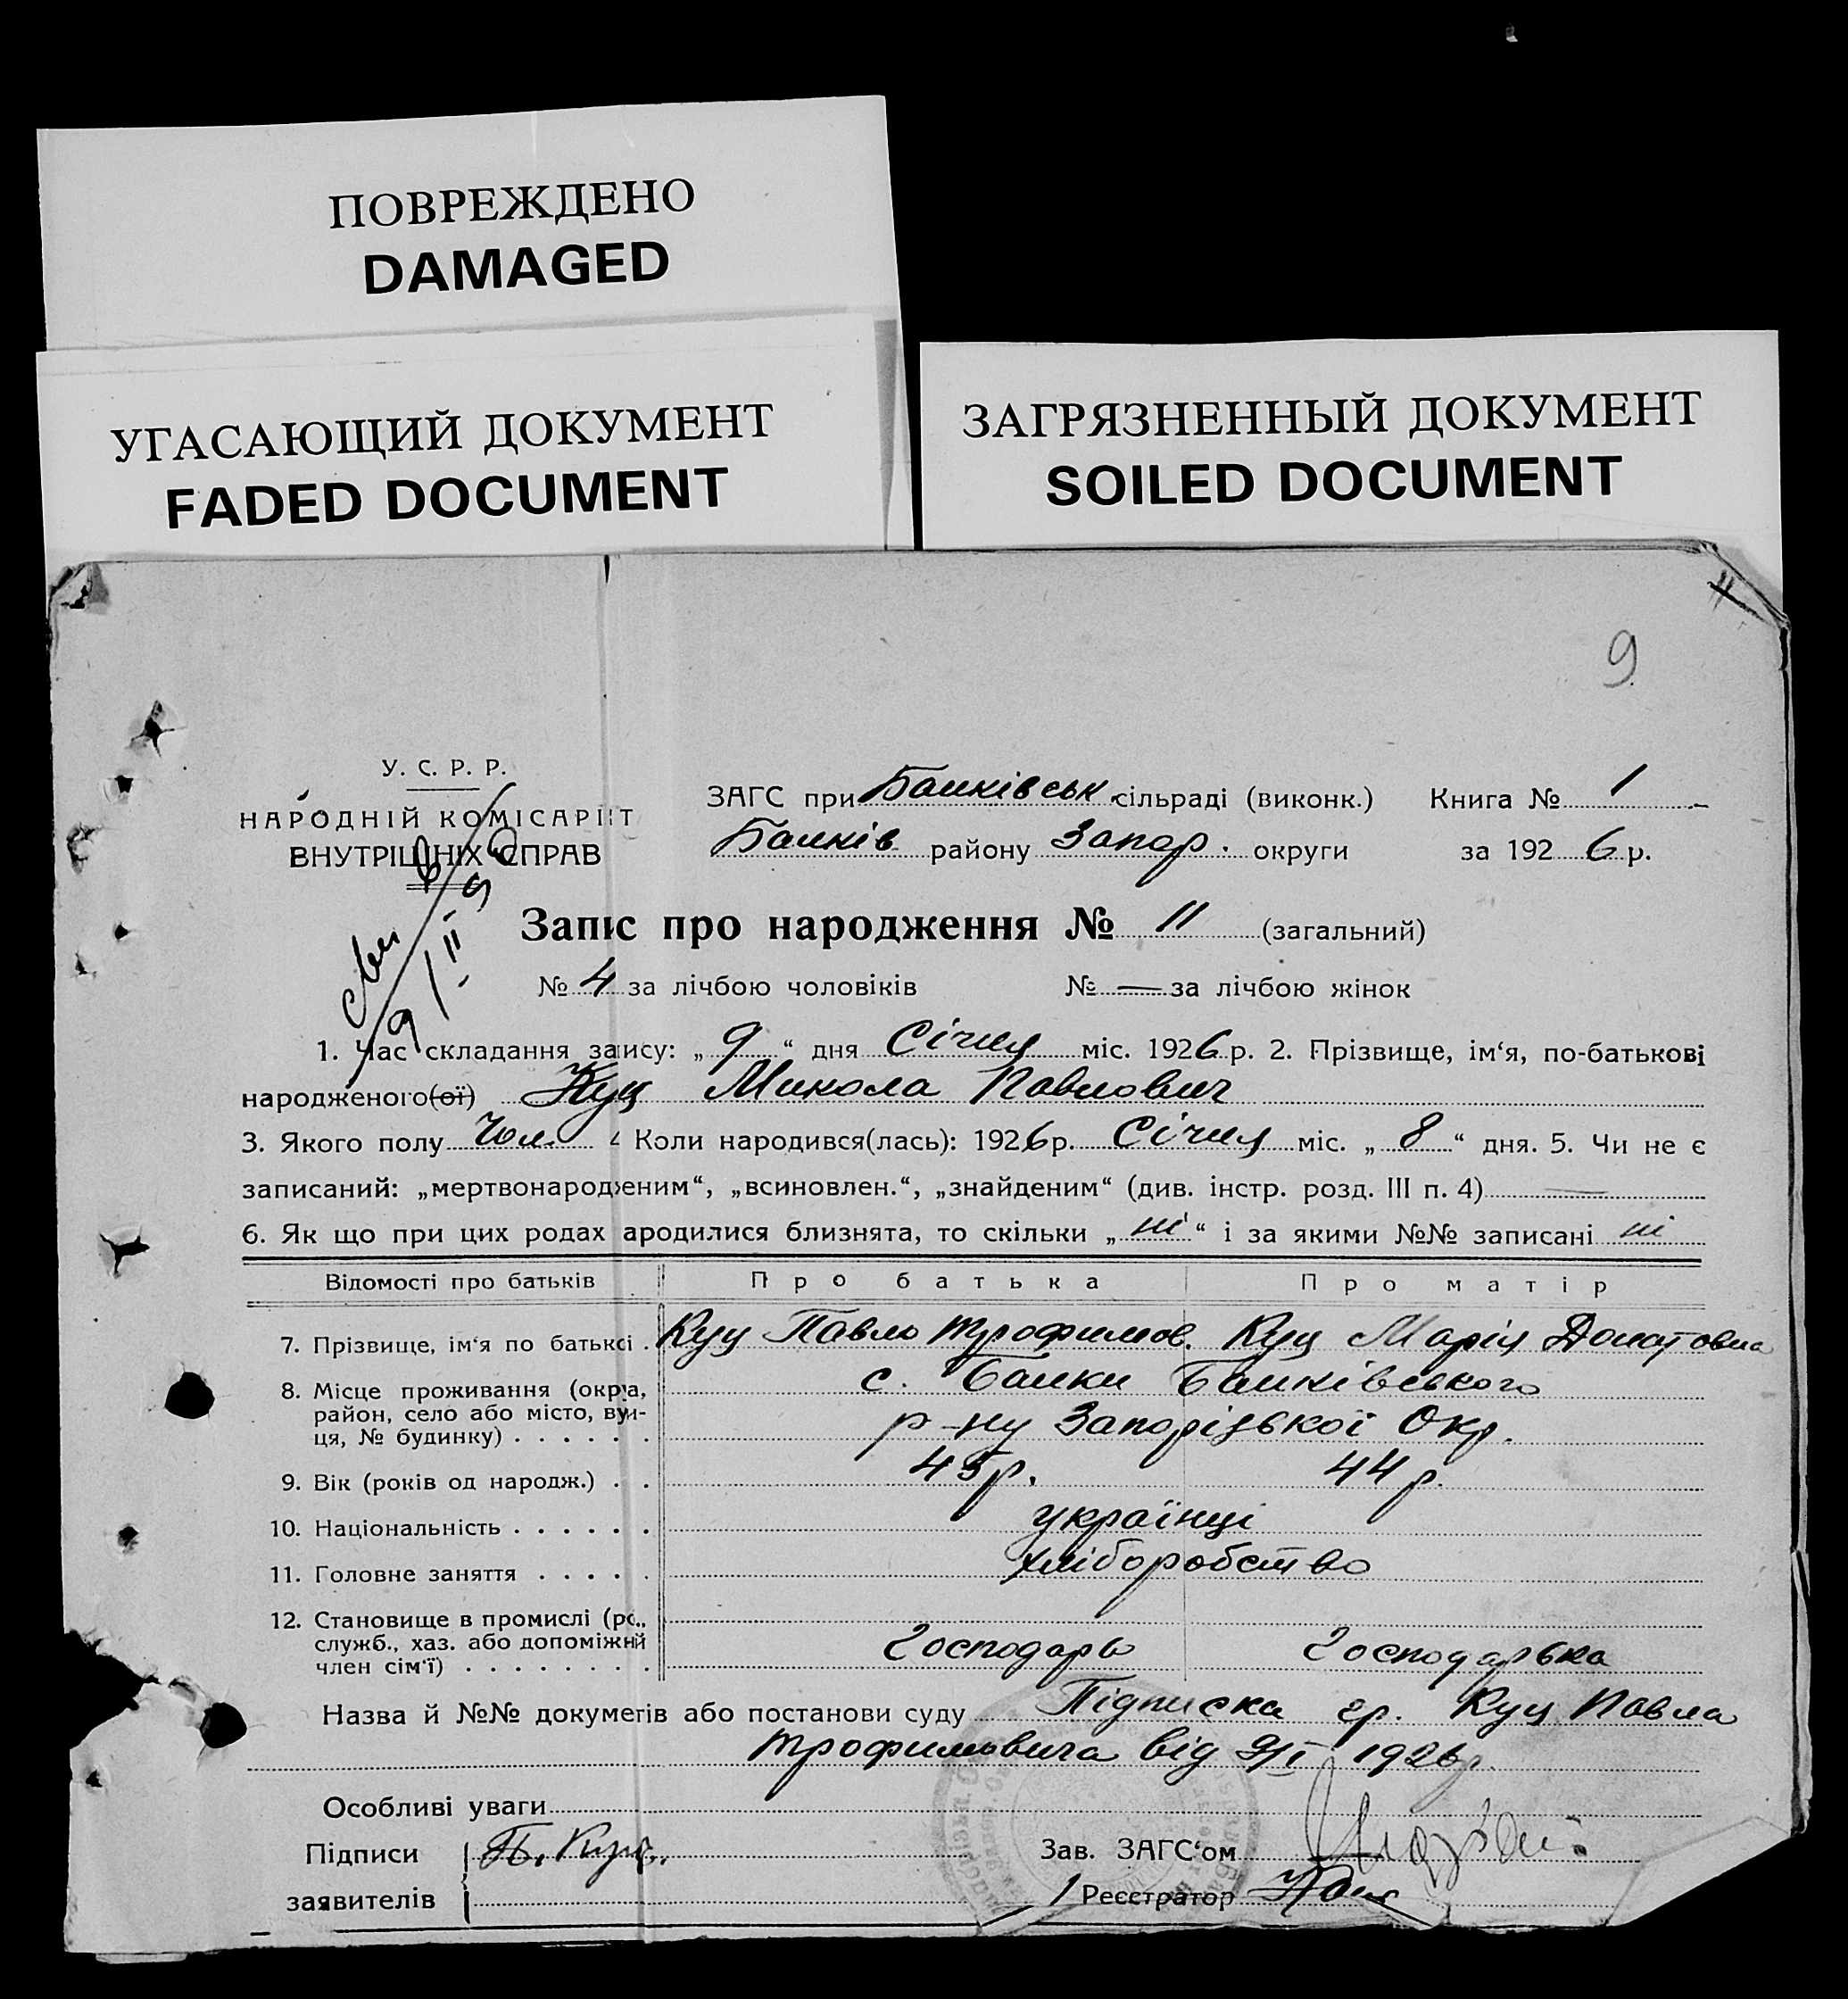 ПОВРЕЖДЕНО
DAMAGED
УГАСАЮЩИЙ ДОКУМЕНТ
FADED DOCUMENT
ЗАГРЯЗНЕННЫЙ ДОКУМЕНТ
SOILED DOCUMENT
9
У. С. Р. Р.
НАРОДНІЙ КОМІСАРІЯТ
ВНУТРІШНІХ СПРАВ
ЗАГС при Балківськ. сільраді (виконк.) Книга № 1
Балків. району Запор. округи за 1926 р.
Запис про народження № 11 (загальний)
№ 4 за лічбою чоловіків № — за лічбою жінок
1. Час складання запису: „ 9 “ дня Січня міс. 1926 р. 2. Прізвище, ім‘я, по-батькові
народженого(ої) Куц Микола Павлович
3. Якого полу Чол. 4 Коли народився(лась): 1926 р. Січня міс. „ 8 “ дня. 5. Чи не є
записаний: „мертвонародженим“, „всиновлен.“, „знайденим“ (див. інстр. розд. III п. 4) —
6. Як що при цих родах народилися близнята, то скільки „ ні “ і за якими №№ записані ні
Відомості про батьків Про батька Про матір
7. Прізвище, ім‘я по батькові . Куц Павло Трофимов. Куц Марія Донатовна
8. Місце проживання (округа, с. Балки Балківського
район, село або місто, вули-
ця, № будинку) . . . . . . р-ну Запорізької Окр.
9. Вік (років од народж.) . . 45 р. 44 р.
10. Національність . . . . . . українці
11. Головне заняття . . . . . хліборобство
12. Становище в промислі (роб.,
служб., хаз. або допоміжний
член сім‘ї) . . . . . . . . Господарь Господарька
Назва й №№ документів або постанови суду Підписка гр. Куц Павла
Трофимовича від 9/I 1926 р.
Особливі уваги
Підписи П. Куц. Зав. ЗАГС‘ом
заявителів Реєстратор